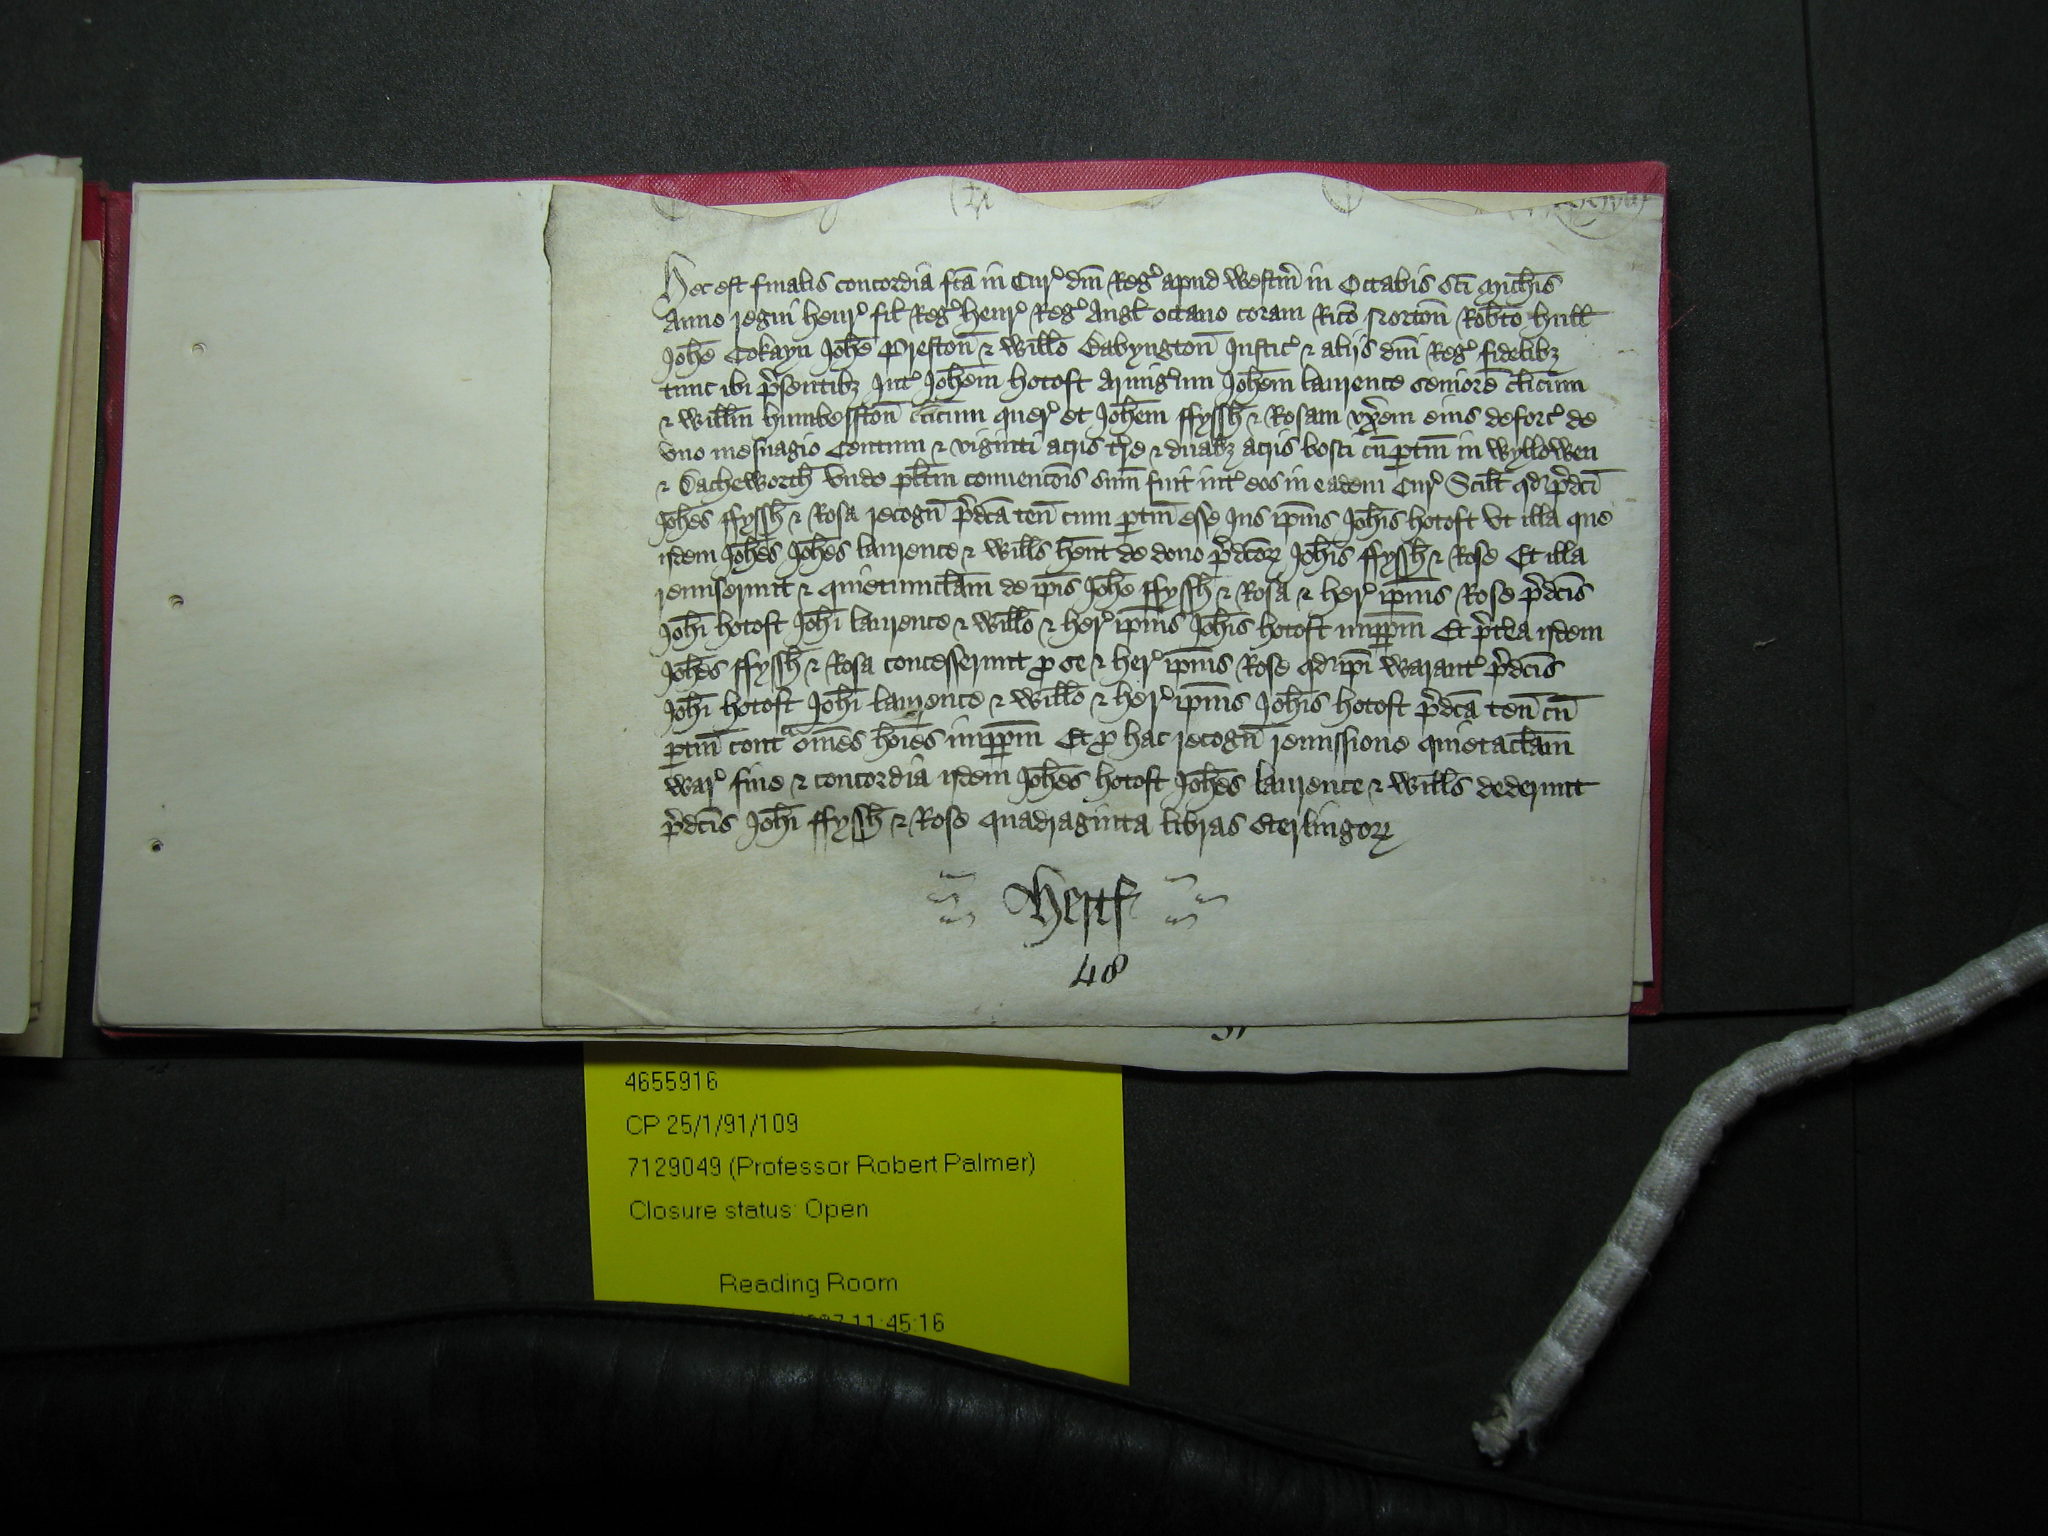 Hec est finalis concordia fc̄a in Cur' dn̄i Reg' apud Westm̄ in Octabis sc̄i Mich̄is
Anno regni Henr' fil' Reg' Henr' Reg' Angl' octauo coram Ric̄o Norton̄ Rob̄to Hull
Joh̄e Cokayn Joh̄e Preston̄ & Will̄o Babyngton̄ Justic' & aliis dn̄i Reg' fidelibȝ
tunc ibi p̄sentibȝ Int' Joh̄em Hotoft Armig'um Joh̄em Laurence seniorē cl̄icum
& Will̄m cl̄icum quer' et Joh̄em ffyssh̄ & Rosam vx̄em eius deforc' de
vno mesuagio Centum & viginti acris t're & duabȝ acris bosci cū p̱tin̄ in Wyllowen
& Dacheworth̄ Vnde pl̄itm conuencōis sum̄ fuit int' eos in eadem Cur' Scil̄t qd' p̄dc̄i
Joh̄es ffyssh̄ & Rosa recogn̄ p̄dc̄a ten̄ cum p̱tin̄ esse Jus ip̄ius Joh̄is Hotoft Vt illa que
ijdem Joh̄es Joh̄es Laurence & Will̄s h̄ent de dono p̄dc̄oꝝ Joh̄is ffyssh̄ & Rose Et illa
remiserunt & quietumclam̄ de ip̄is Joh̄e ffyssh̄ & Rosa & her' ip̄ius Rose p̄dc̄is
Joh̄i Hotoft Joh̄i Laurence & Will̄o & her' ip̄ius Joh̄is Hotoft imp̱p̱m̄ Et p̄t'ea ijdem
Joh̄es ffyssh̄ & Rosa concesserunt ꝓ se & her' ip̄ius Rose qd' ip̄i Warant' p̄dc̄is
Joh̄i Hotoft Joh̄i Laurence & Will̄o & her' ip̄ius Joh̄is Hotoft p̄dc̄a ten̄ cū
p̱tin̄ contᵃ om̄es ho͞ies imp̱p̱m̄ Et ꝓ hac recogn̄ remissione quietaclam̄
War' fine & concordia ijdem Joh̄es Hotoft Joh̄es Laurence & Will̄s dederunt
p̄dc̄is Joh̄i ffyssh̄ & Rose quadraginta libras sterlingoꝝ
Hertf
48
4655916
CP 25/1/91/109
7129049 (Professor Robert Palmer)
Closure status: Open
Reading Room
11:45:16